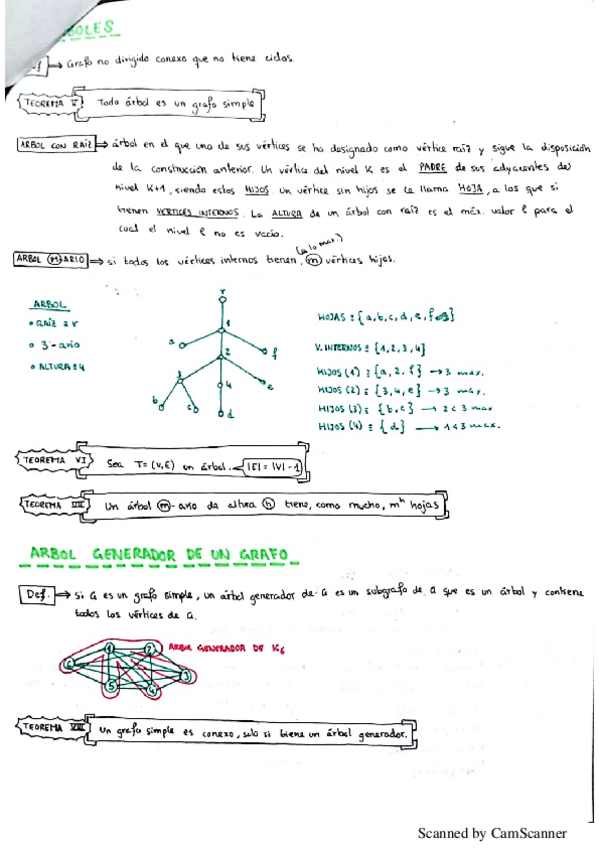 BOLES
Grafo no dirigido conexo que no tiene ciclos.
TEOREMA V Todo árbol es un grafo simple
ARBOL CON RAIZ => árbol en el que uno de sus vértices se ha designado como vértice raíz y sigue la disposición
de la construcción anterior. Un vértice del nivel K es el PADRE de sus adyacentes del
nivel K+1, siendo estos HIJOS. Un vértice sin hijos se le llama HOJA, a los que si
tienen VERTICES INTERNOS. La ALTURA de un árbol con raíz es el máx. valor l para el
cual el nivel l no es vacío.
(solo max.)
ARBOL M-ARIO => si todos los vértices internos tienen m vértices hijos.
ARBOL
• RAIZ = r
• 3-ario
• ALTURA = 4
r
1
a
f
2
3
4
e
b
c
d
HOJAS = {a,b,c,d,e,f}
V. INTERNOS = {1,2,3,4}
HIJOS (1) = {a,2,f} → 3 max.
HIJOS (2) = {3,4,e} → 3 max.
HIJOS (3) = {b,c} → 2<3 max
HIJOS (4) = {d} → 1<3 max.
TEOREMA VI Sea T=(V,E) un árbol. |E|=|V|-1
TEOREMA VII Un árbol m-ario de altura h tiene, como mucho, m^h hojas
ARBOL GENERADOR DE UN GRAFO
Def. → Si G es un grafo simple, un árbol generador de G es un subgrafo de G que es un árbol y contiene
todos los vértices de G.
1 2 ARBOL GENERADOR DE K6
6 3
5 4
TEOREMA VIII Un grafo simple es conexo, solo si tiene un árbol generador.
Scanned by CamScanner